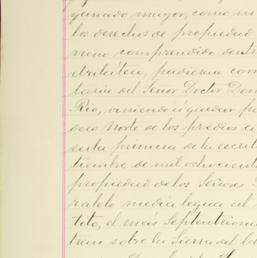 quinado mayor, como in
los derechos de propiedad
rreno comprendido dentr
drilátero, pudieran com
taria del Señor Doctor Don
Rio, viniendo á quedar po
dero Norte de los predios a
sula primera de la escrit
tiembre de mil ochocient
propiedad de los Señores
ralelo media legua al
tito, el más Septentriona
tran sobre la Sierra del